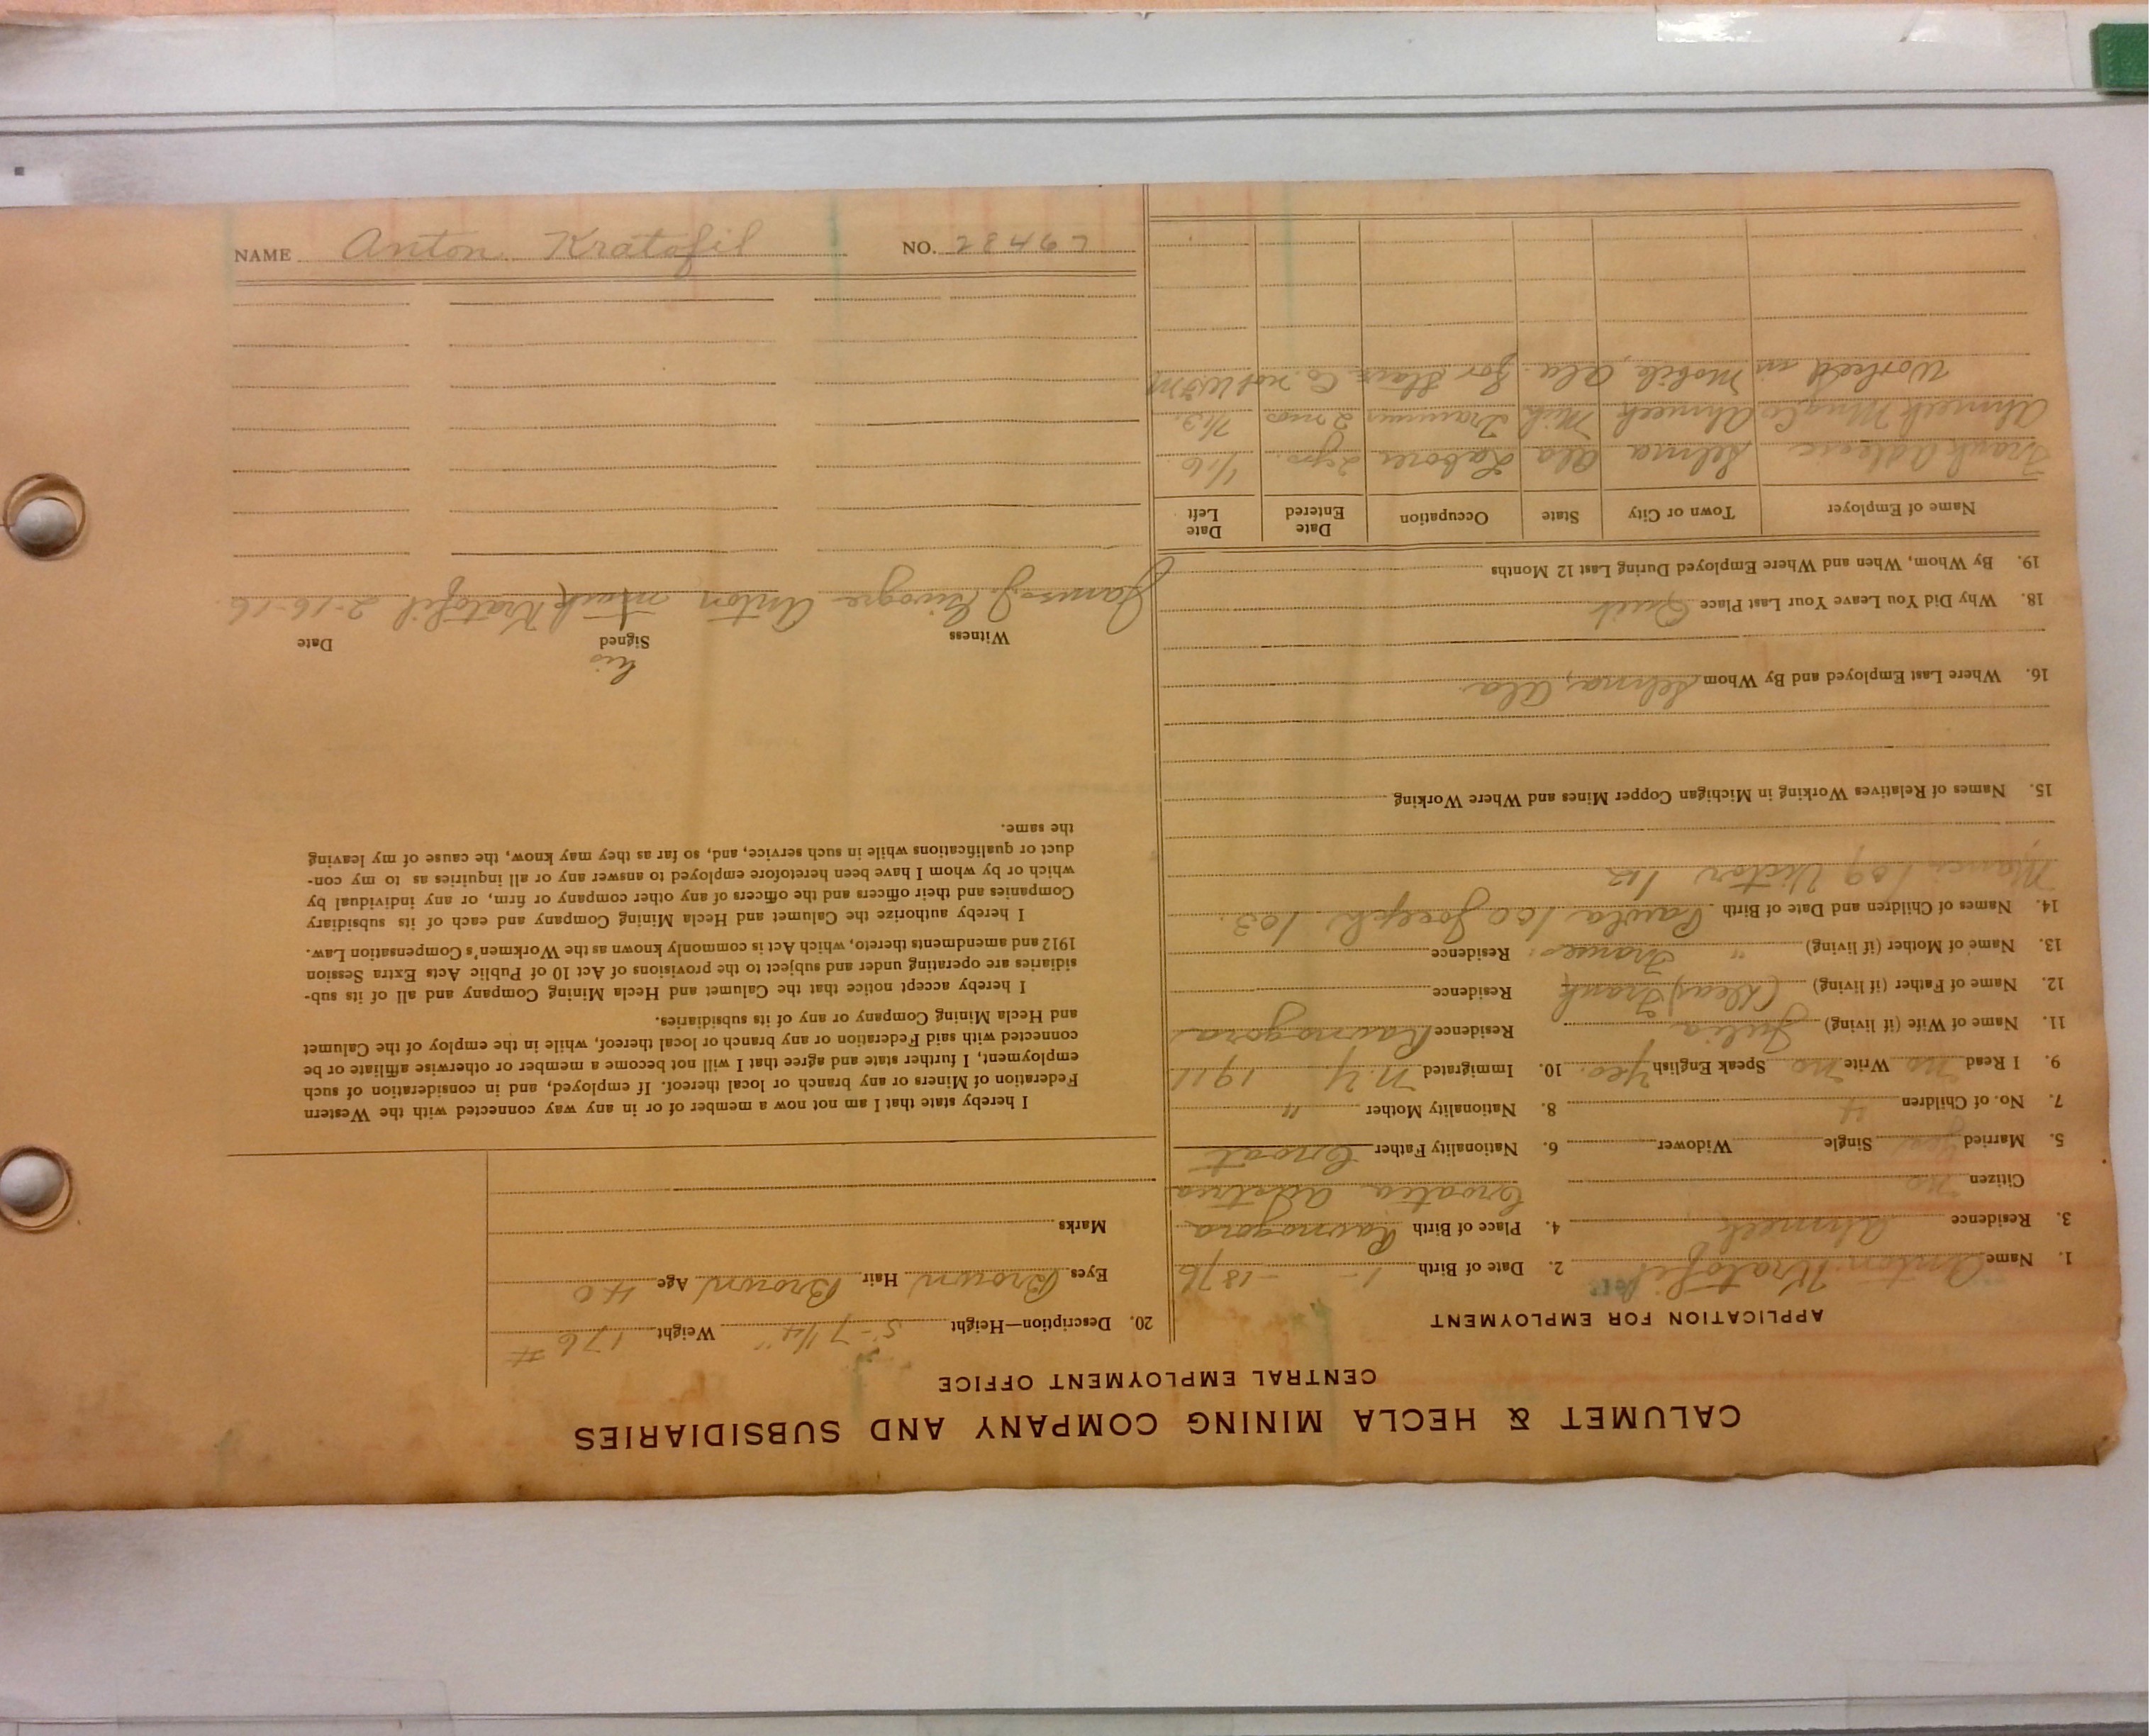 CALUMET & HECLA MINING COMPANY AND SUBSIDIARIES
CENTRAL EMPLOYMENT OFFICE
APPLICATION FOR EMPLOYMENT
1. Name Anton Kratofil 2. Date of Birth 1 - - 1876
3. Residence Ahmeek 4. Place of Birth Ravnagora
Citizen no Croatia Austria
5. Married Yes Single Widower 6. Nationality Father Croat
7. No. of Children 4 8. Nationality Mother "
9. I Read no Write no Speak English Yes. 10. Immigrated N.Y. 1911
11. Name of Wife (if living) Julia Residence Ravnagora
12. Name of Father (if living) (Dead) Frank Residence
13. Name of Mother (if living) " Frances Residence
14. Names of Children and Date of Birth Paula 1/00 Joseph 1/03.
1/09 Victor 1/12
15. Names of Relatives Working in Michigan Copper Mines and Where Working
16. Where Last Employed and By Whom Selma, Ala
18. Why Did You Leave Your Last Place Quit
19. By Whom, When and Where Employed During Last 12 Months
Name of Employer Town or City State Occupation Date Entered Date Left
Frank Selma Ala Laborer 2 yrs. 1/16
Ahmeek Mng Co Ahmeek Mich Trammer 2 mos 7/13.
Worked in Mobile, Ala. for Co. not
20. Description—Height 5'-7 1/4" Weight 176 #
Eyes Brown Hair Brown Age 40
Marks
I hereby state that I am not now a member of or in any way connected with the Western
Federation of Miners or any branch or local thereof. If employed, and in consideration of such
employment, I further state and agree that I will not become a member or otherwise affiliate or be
connected with said Federation or any branch or local thereof, while in the employ of the Calumet
and Hecla Mining Company or any of its subsidiaries.
I hereby accept notice that the Calumet and Hecla Mining Company and all of its sub-
sidiaries are operating under and subject to the provisions of Act 10 of Public Acts Extra Session
1912 and amendments thereto, which Act is commonly known as the Workmen's Compensation Law.
I hereby authorize the Calumet and Hecla Mining Company and each of its subsidiary
Companies and their officers and the officers of any other company or firm, or any individual by
which or by whom I have been heretofore employed to answer any or all inquiries as to my con-
duct or qualifications while in such service, and, so far as they may know, the cause of my leaving
the same.
his
Witness Signed Date
James J. Anton mark Kratofil 2-16-16
NAME Anton Kratofil NO.